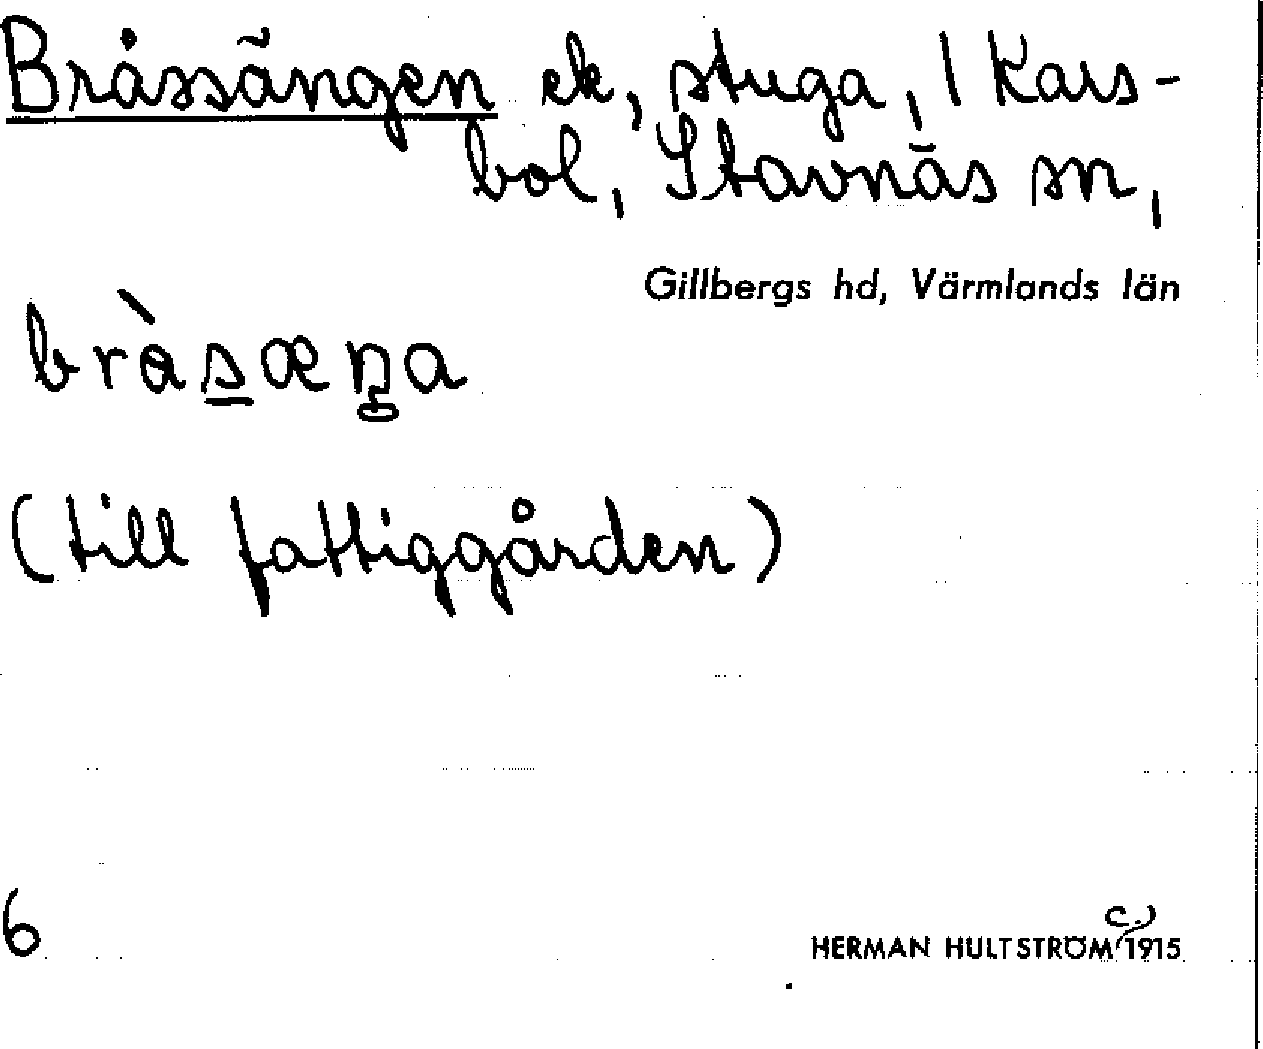 Bråssängen ek, stuga, 1 Kars-
bol, Stavnäs sn,
Gillbergs hd, Värmlands län
bràs̲æŋa
(till fattiggården)
6
c.)
HERMAN HULTSTRÖM 1915